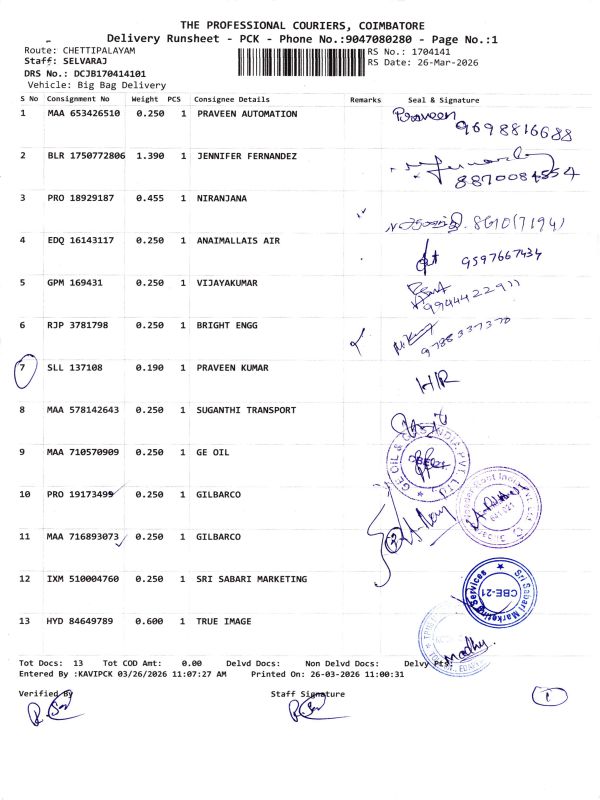 THE PROFESSIONAL COURIERS, COIMBATORE
Delivery Runsheet - PCK - Phone No.:9047080280 - Page No.:1
Route: CHETTIPALAYAM
RS No.: 1704141
Staff: SELVARAJ
RS Date: 26-Mar-2026
DRS No.: DCJB170414101
Vehicle: Big Bag Delivery
S No Consignment No Weight PCS Consignee Details Remarks Seal & Signature
1 MAA 653426510 0.250 1 PRAVEEN AUTOMATION Praveen
9698816688
2 BLR 1750772806 1.390 1 JENNIFER FERNANDEZ
8870084554
3 PRO 18929187 0.455 1 NIRANJANA
8610(7194)
4 EDQ 16143117 0.250 1 ANAIMALLAIS AIR 9597667434
5 GPM 169431 0.250 1 VIJAYAKUMAR
9944422911
6 RJP 3781798 0.250 1 BRIGHT ENGG
9788337370
7 SLL 137108 0.190 1 PRAVEEN KUMAR
H/R
8 MAA 578142643 0.250 1 SUGANTHI TRANSPORT
9 MAA 710570909 0.250 1 GE OIL
GE OIL & GAS INDIA PVT. LTD.
10 PRO 19173495 0.250 1 GILBARCO
11 MAA 716893073 0.250 1 GILBARCO
2
12 IXM 510004760 0.250 1 SRI SABARI MARKETING
Sri Sabari Marketing Services
CBE-21
13 HYD 84649789 0.600 1 TRUE IMAGE
Madhy
Tot Docs: 13 Tot COD Amt: 0.00 Delvd Docs: Non Delvd Docs: Delvy Pts:
Entered By :KAVIPCK 03/26/2026 11:07:27 AM Printed On: 26-03-2026 11:00:31
Verified By Staff Signature
1